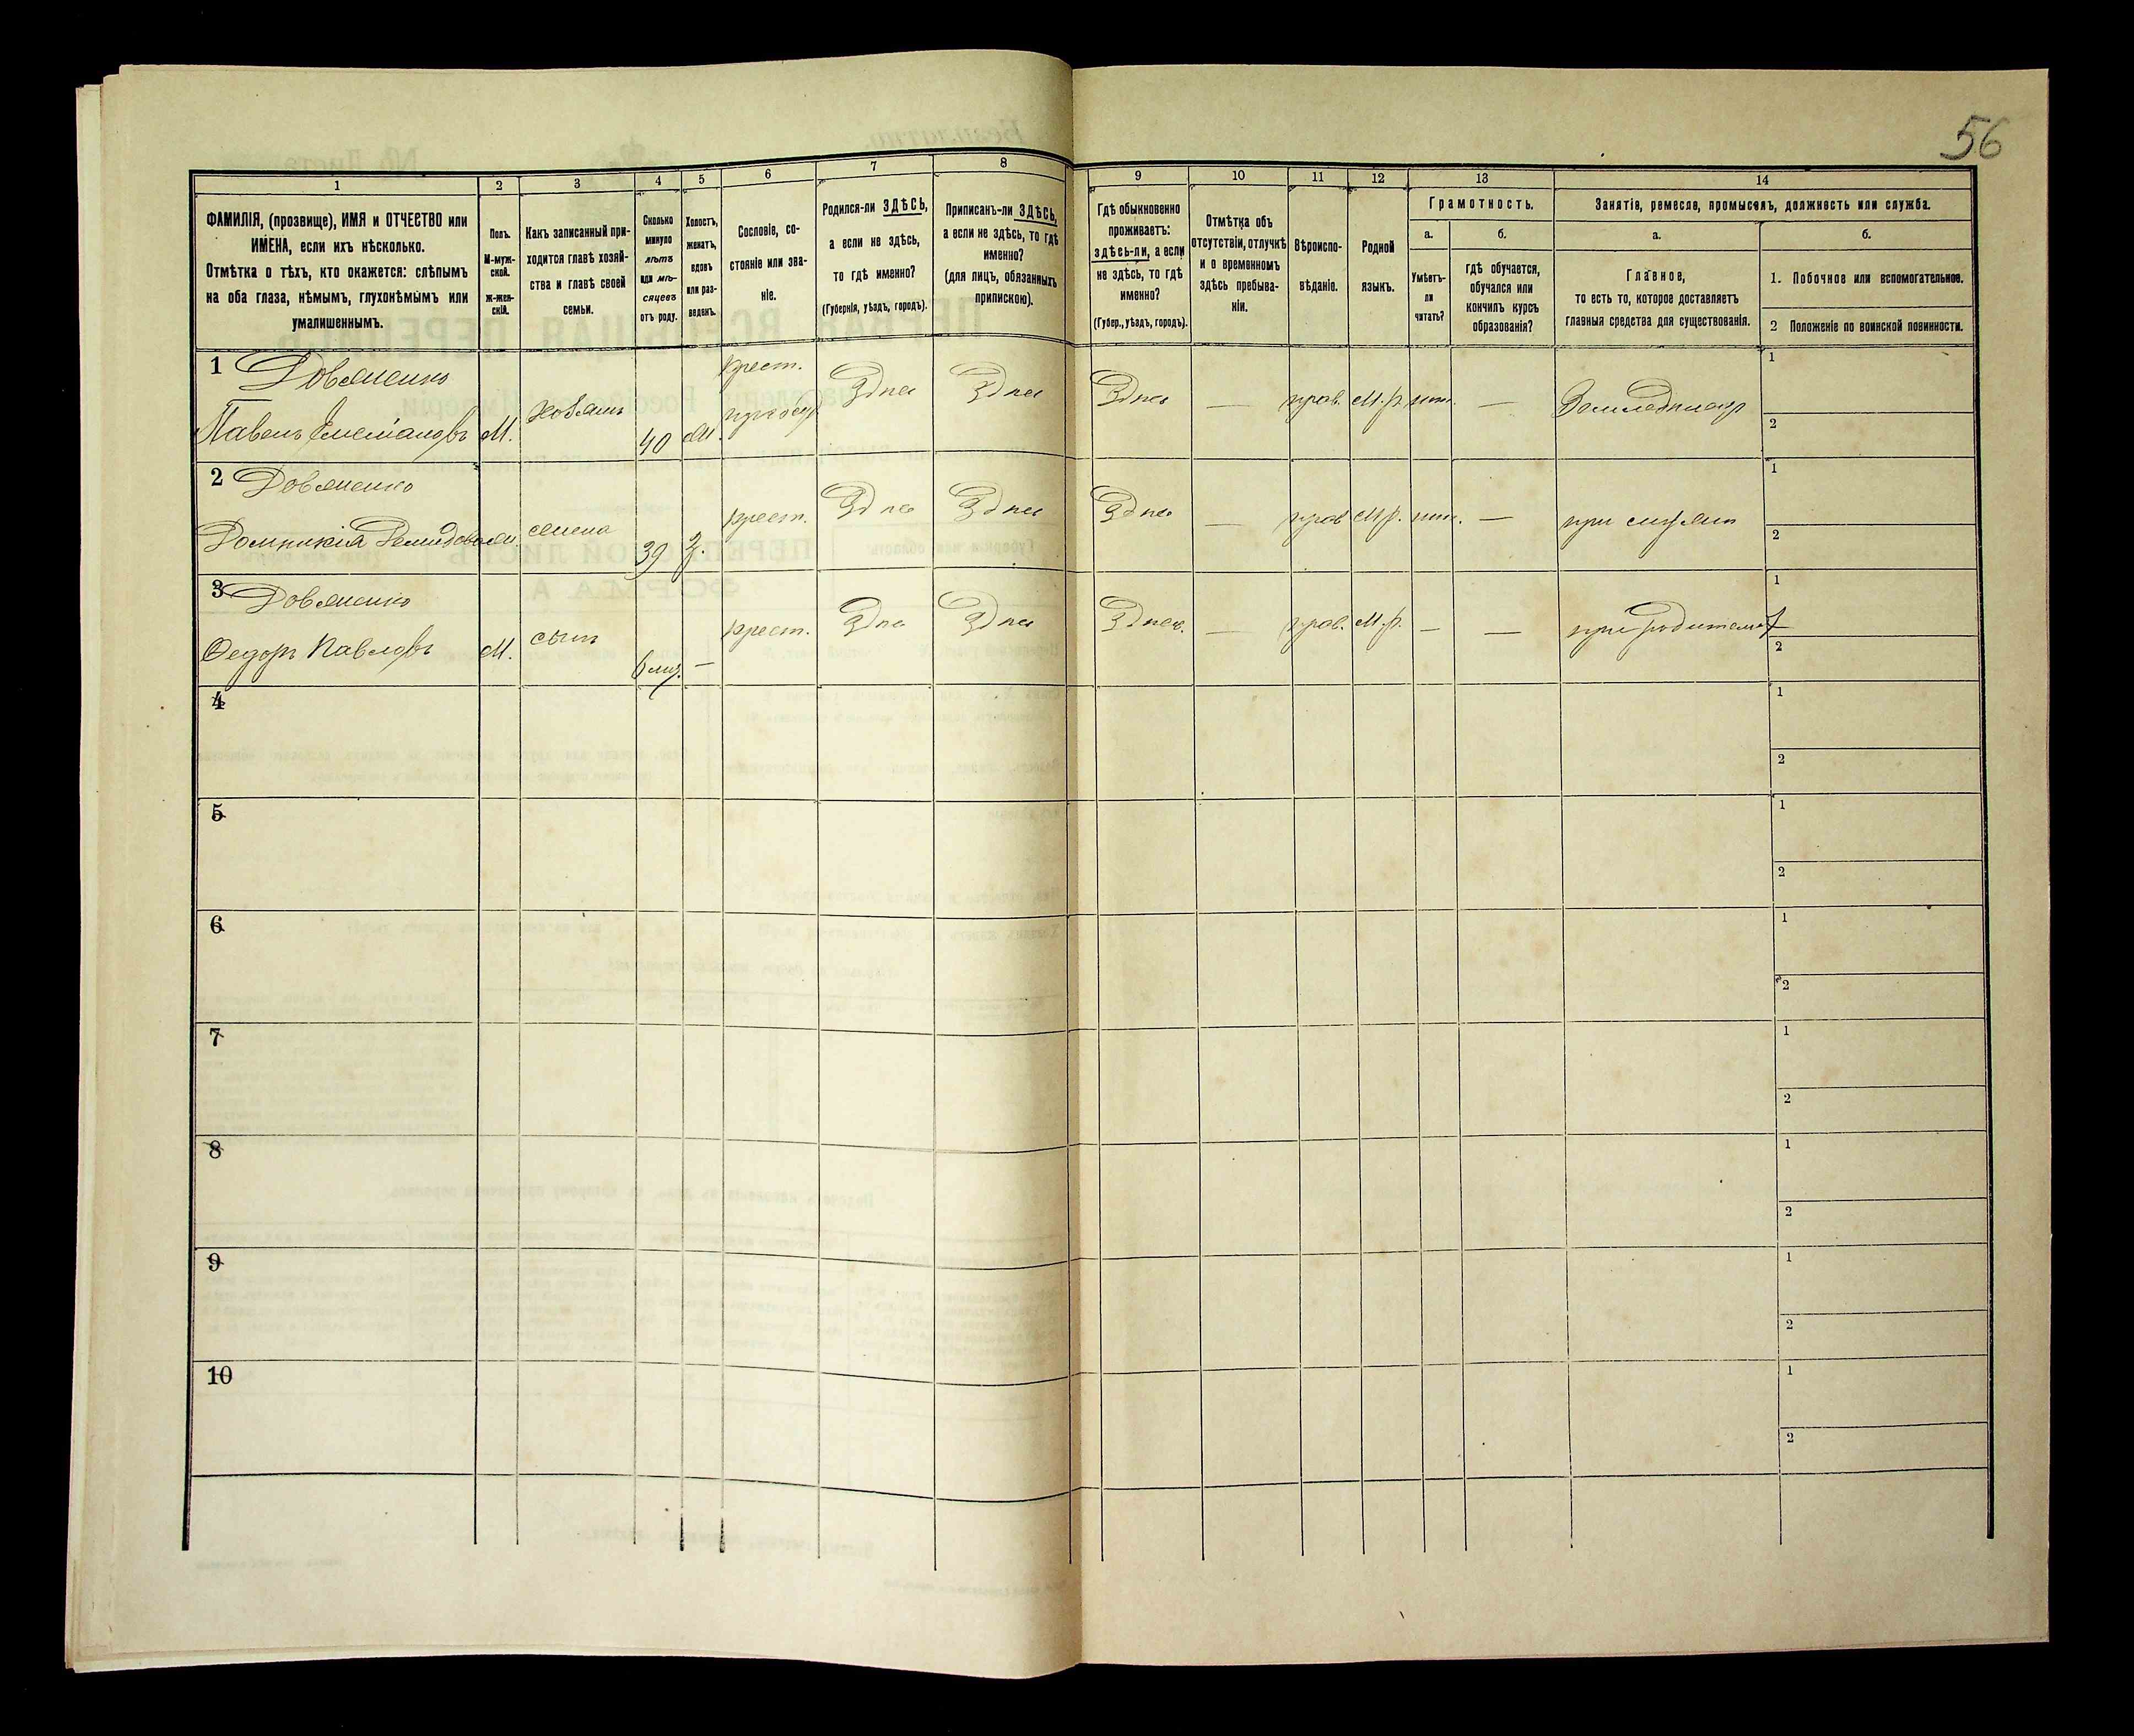 56
1 2 3 4 5 6 7 8 9 10 11 12 13 14
ФАМИЛІЯ, (прозвище), ИМЯ и ОТЧЕСТВО или
ИМЕНА, если ихъ нѣсколько.
Отмѣтка о тѣхъ, кто окажется: слѣпымъ
на оба глаза, нѣмымъ, глухонѣмымъ или
умалишеннымъ.
Полъ.
М-муж-
ской.
Ж-жен-
скій.
Какъ записанный при-
ходится главѣ хозяй-
ства и главѣ своей
семьи.
Сколько
минуло
лѣтъ
или мѣ-
сяцевъ
отъ роду.
Холостъ,
женатъ,
вдовъ
или раз-
веденъ.
Сословіе, со-
стояніе или зва-
ніе.
Родился-ли ЗДѢСЬ,
а если не здѣсь,
то гдѣ именно?
(Губернія, уѣздъ, городъ).
Приписанъ-ли ЗДѢСЬ,
а если не здѣсь, то гдѣ
именно?
(для лицъ, обязанныхъ
припискою).
Гдѣ обыкновенно
проживаетъ:
здѣсь-ли, а если
не здѣсь, то гдѣ
именно?
(Губер., уѣздъ, городъ).
Отмѣтка объ
отсутствіи, отлучкѣ
и о временномъ
здѣсь пребыва-
ніи.
Вѣроиспо-
вѣданіе.
Родной
языкъ.
Грамотность.
а.
Умѣетъ-
ли
читать?
б.
гдѣ обучается,
обучался или
кончилъ курсъ
образованія?
Занятіе, ремесло, промыселъ, должность или служба.
а.
Главное,
то есть то, которое доставляетъ
главныя средства для существованія.
б.
1. Побочное или вспомогательное.
2 Положеніе по воинской повинности.
1 Довженко крест. Здѣсь Здѣсь Здѣсь — прав. М.р. — 1
Павелъ М. 40 2
2 Довженко крест. Здѣсь Здѣсь Здѣсь — прав М.р. — при 1
Домникія жена 39 2
3 Довженко крест. Здѣсь Здѣсь Здѣсь. — прав. М.р. — — при родителях 1
Федоръ Павловъ М. сынъ 6 мѣ. — 2
4 1
2
5 1
2
6 1
2
7 1
2
8 1
2
9 1
2
10 1
2